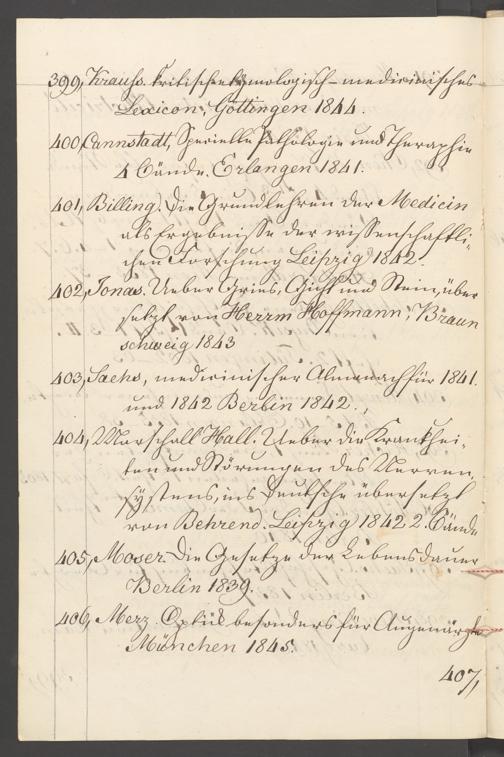 399, Krauss. Kritisch etymologisch-medicinisches
Lexicon, Göttingen 1844.
400, Cannstadt, Specielle Pathologie und Theraphie
4 Bände. Erlangen 1841.
401, Billing. Die Grundlehren der Medicin
als Ergebnisse der wissenschaftli-
chen Forschung Leipzig 1842.
402, Jonas. Ueber Gries, Gicht und Stein, über
setzt von Herrm Hoffmann, Braun
schweig 1843
403, Sachs, medicinischer Almanach für 1841.
und 1842 Berlin 1842.,
404, Marschall Hall. Ueber die Krankhei-
ten und Störungen des Nerven,
systens, ins Deutsche übersetzt
von Behrend. Leipzig 1842 2. Bände
405, Moser. Die Gesetze der Lebensdauer
Berlin 1839.
406, Merz. Optik besonders für Augenärzte
München 1845.
407,